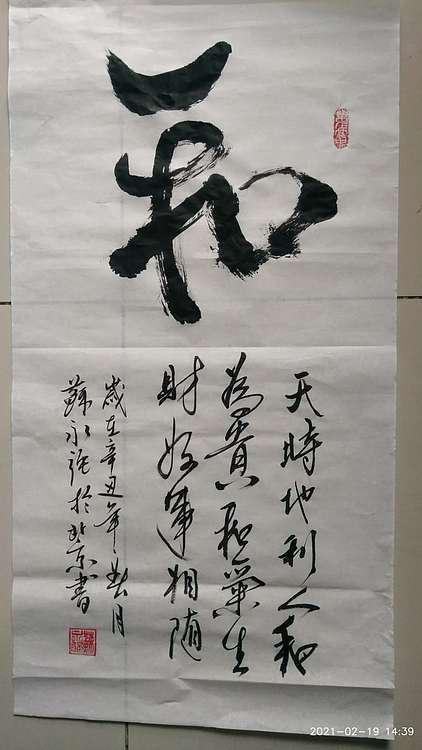 和
天時地利人和
為貴和氣生
財好運相隨
歲在辛丑年春月
蘇永強於北京書
2021-02-19 14:39